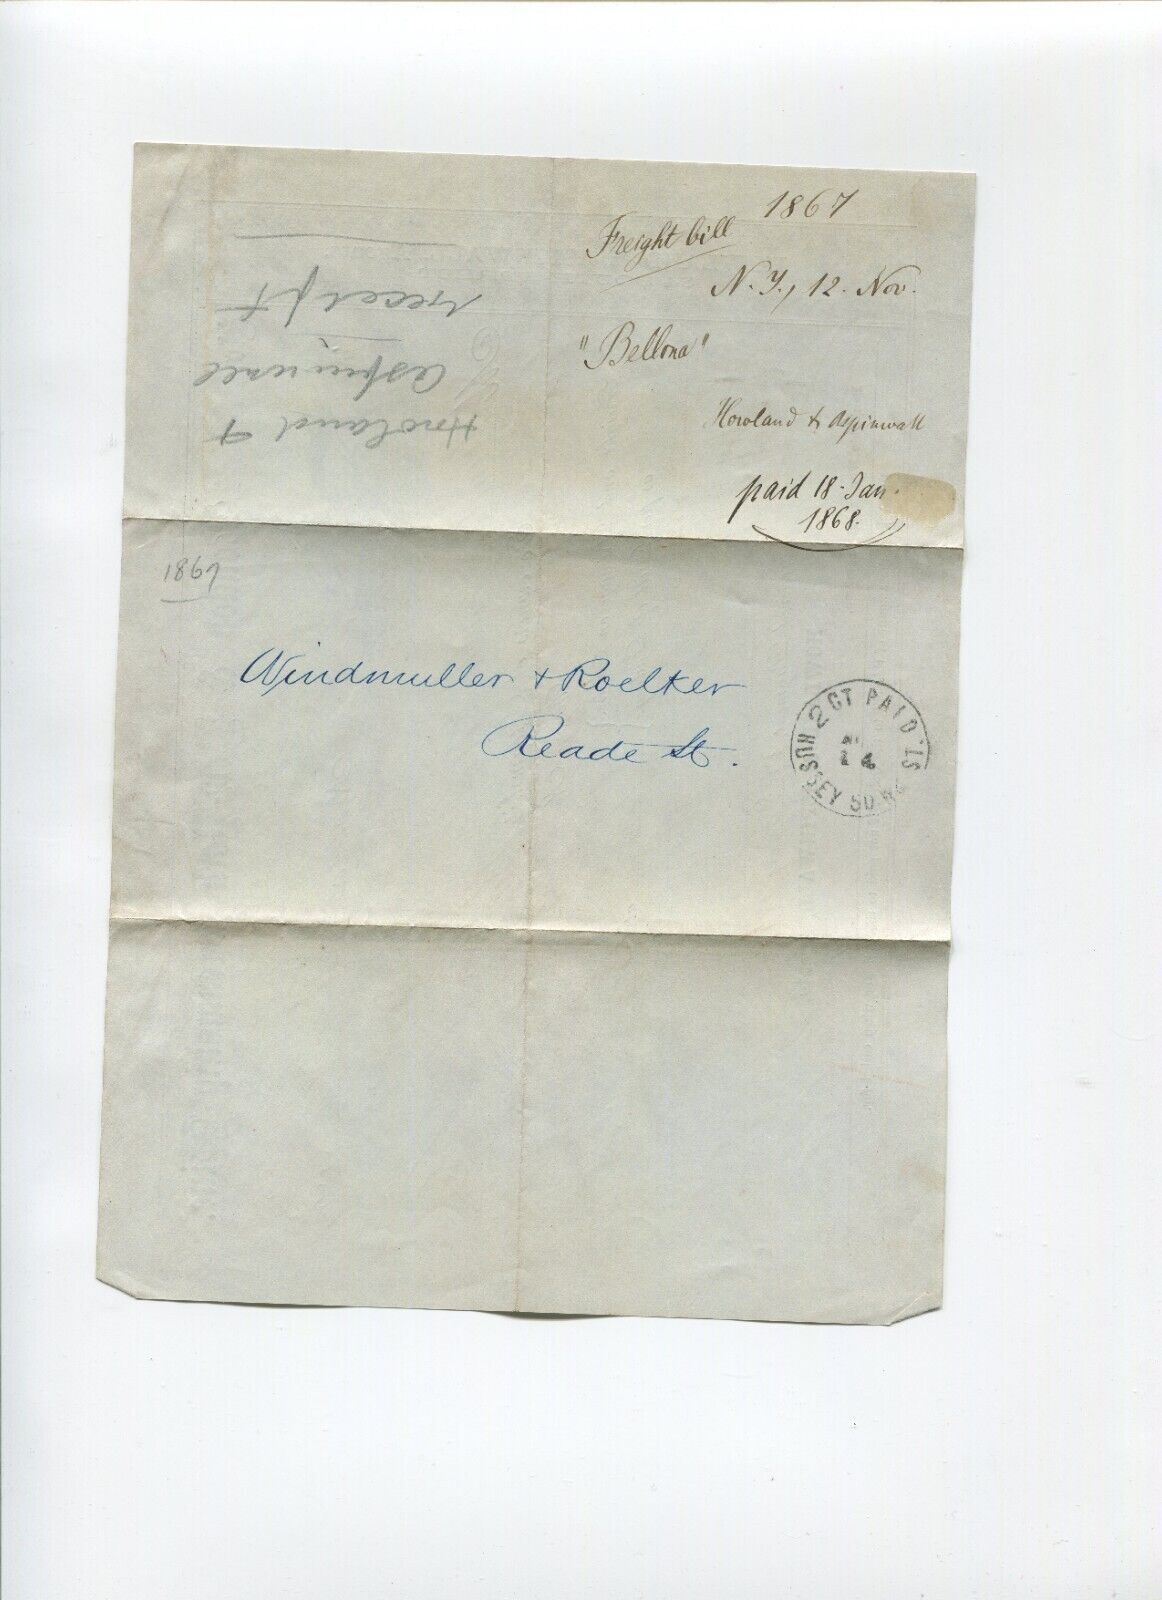 1867
Freight bill
N.Y., 12. Nov.
"Bellona"
Howland & Aspinwall
paid 18. Jan.
1868.
Howland &
Aspinwall
receipt
1867
Windmuller & Roelker
Reade St.
HUSSEY'S 2 CT PAID
50 WM. ST.